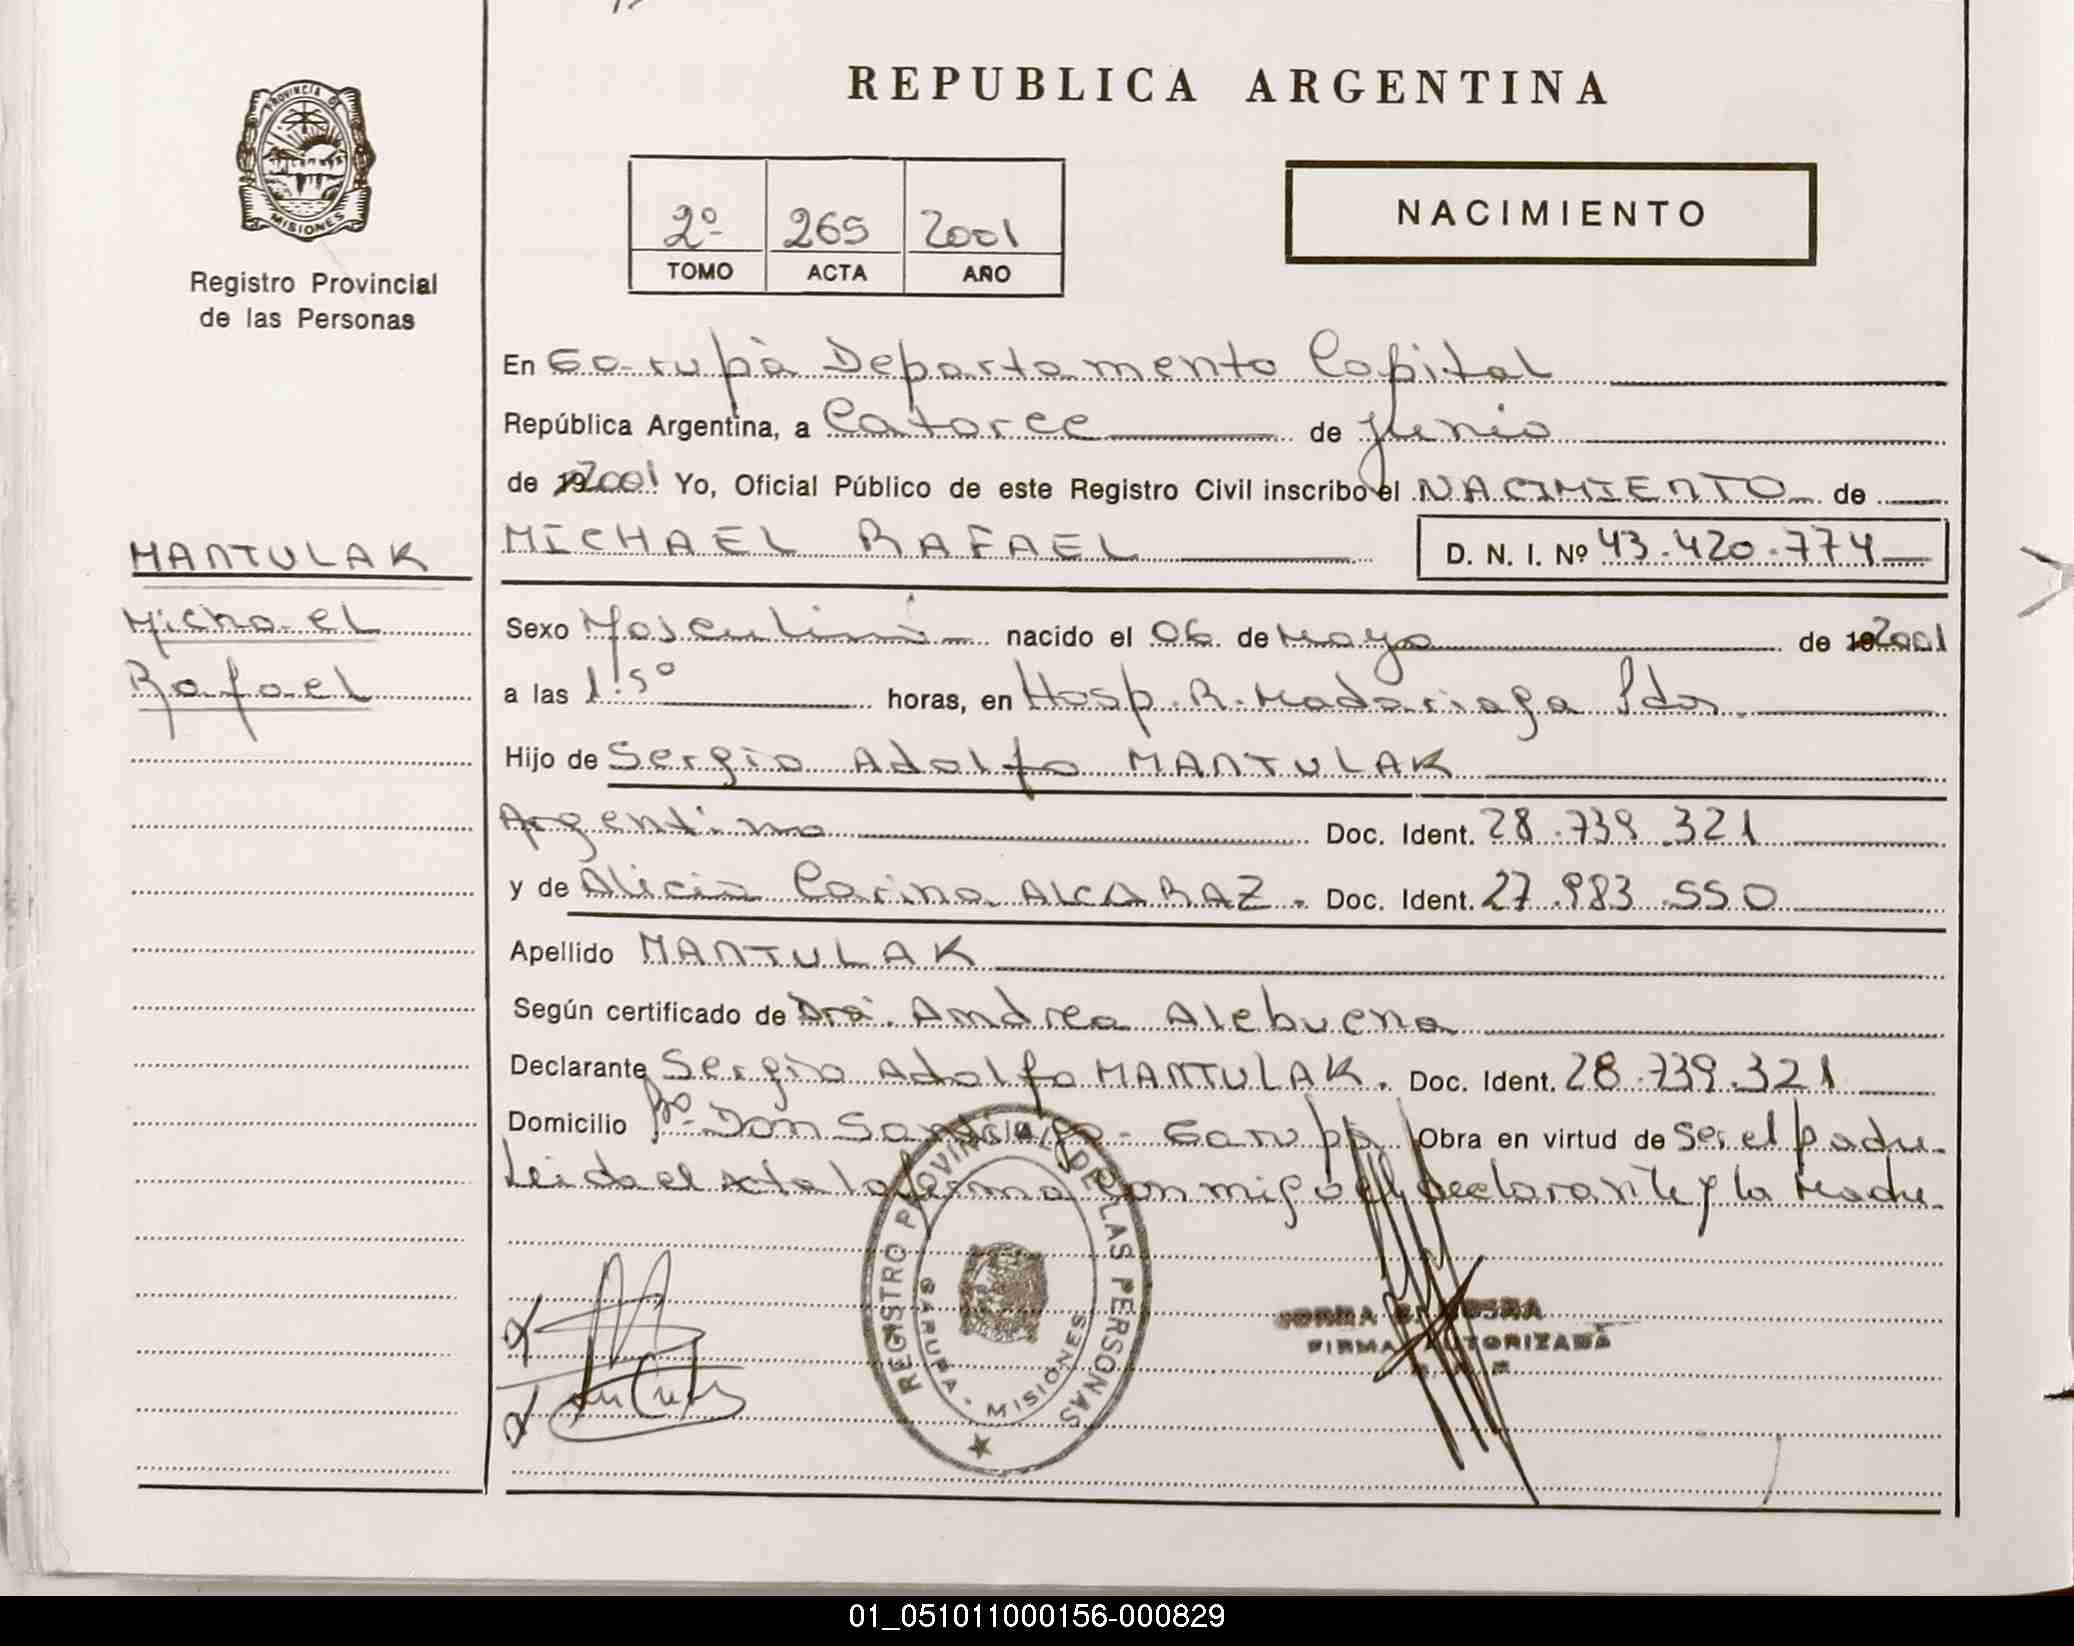 REPUBLICA ARGENTINA
PROVINCIA DE
MISIONES
Registro Provincial
de las Personas
2º 265 2001
TOMO ACTA AÑO
NACIMIENTO
En Garupà Departamento Capital
República Argentina, a Catorce de Junio
de 2001 Yo, Oficial Público de este Registro Civil inscribo el NACIMIENTO de
MICHAEL RAFAEL D. N. I. Nº 43.420.774
MANTULAK
Michael
Rafael
Sexo Masculino nacido el 06 de Mayo de 2001
a las 1:5º horas, en Hosp. R. Madariaga Pdas.
Hijo de Sergio Adolfo MANTULAK
Argentino Doc. Ident. 28.739.321
y de Alicia Carina ALCARAZ. Doc. Ident. 27.983.550
Apellido MANTULAK
Según certificado de Dra. Andrea Alebuena
Declarante Sergio Adolfo MANTULAK. Doc. Ident. 28.739.321
Domicilio Bº Don Santiago - Garupà Obra en virtud de ser el padre.
Leida el acta la firma conmigo el declarante y la Madre.
REGISTRO PROVINCIAL DE LAS PERSONAS
GARUPA - MISIONES
FIRMA AUTORIZADA
01_051011000156-000829